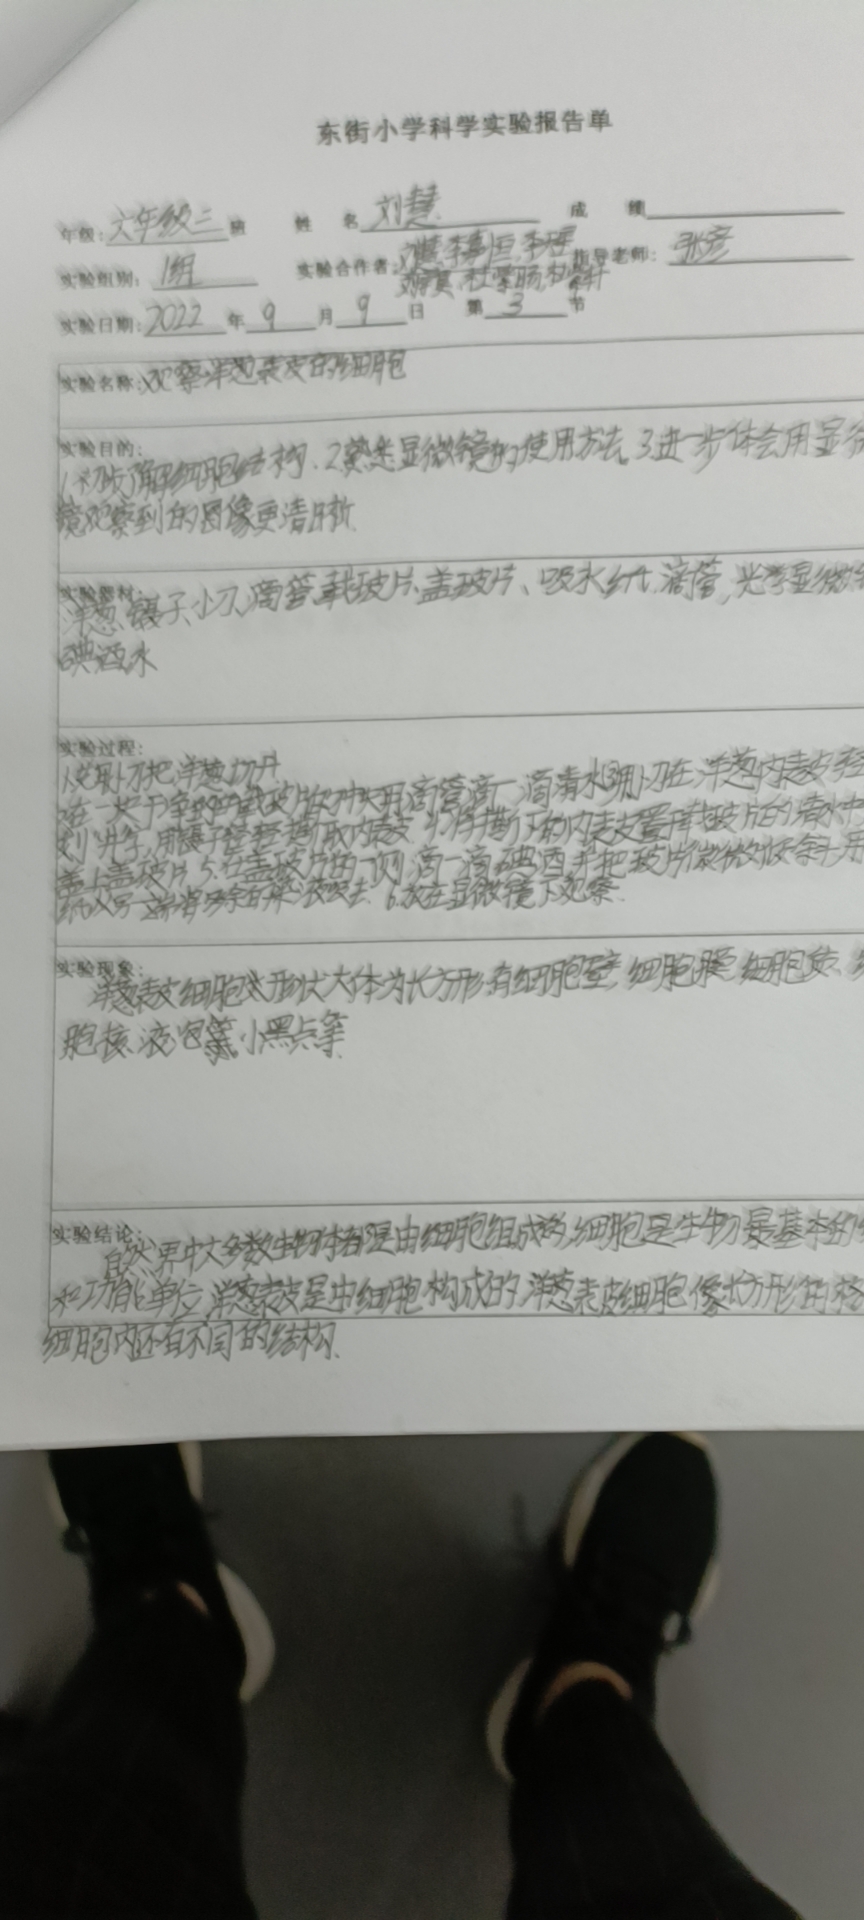 东街小学科学实验报告单
年级:六年级三班 姓名 刘慧 成绩
实验组别: 1组 实验合作者: 刘慧 李 李 指导老师: 张彦
杜
实验日期:2022年9月9日 第3节
实验名称:观察洋葱表皮的细胞
实验目的:
1.初步了解细胞结构、2熟悉显微镜的使用方法。3进一步体会用显微
镜观察到的图像更清晰
实验器材:
洋葱、镊子、小刀、滴管、载玻片、盖玻片、吸水纸、滴管,光学显微
碘酒水
实验过程:
1.用小刀把洋葱切开
2在一块干净的载玻片中央用滴管滴一滴清水3用小刀在洋葱内表皮轻
划"井"字,用镊子轻轻撕取内表皮 4.将撕下的内表皮置于载玻片的清水中
盖上盖玻片 5.在盖玻片的一侧滴一滴碘酒并把玻片微微倾斜 用
纸从另一端将多余的染液吸去. 6.放在显微镜下观察.
实验现象:
洋葱表皮细胞 形状大体为长方形,有细胞壁 细胞膜 细胞质、
胞核、液泡 小黑点等
实验结论:
自然界中大多数生物体都是由细胞组成的,细胞是生物最基本的
和功能单位,洋葱表皮是由细胞构成的,洋葱表皮细胞像长方形的格
细胞内还有不同的结构.